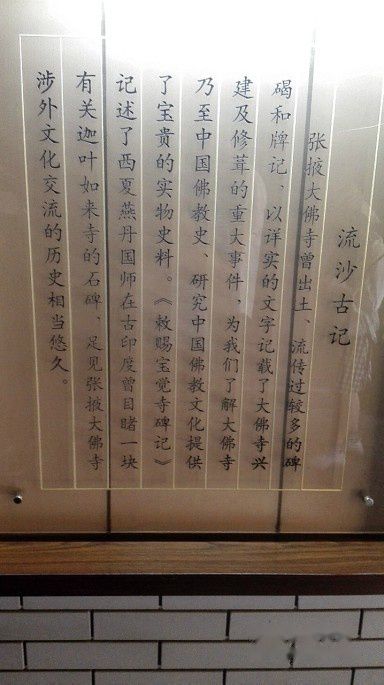 流沙古记
张掖大佛寺曾出土、流传过较多的碑
碣和牌记，以详实的文字记载了大佛寺兴
建及修葺的重大事件，为我们了解大佛寺
乃至中国佛教史、研究中国佛教文化提供
了宝贵的实物史料。《敕赐宝觉寺碑记》
记述了西夏燕丹国师在古印度曾目睹一块
有关迦叶如来寺的石碑，足见张掖大佛寺
涉外文化交流的历史相当悠久。